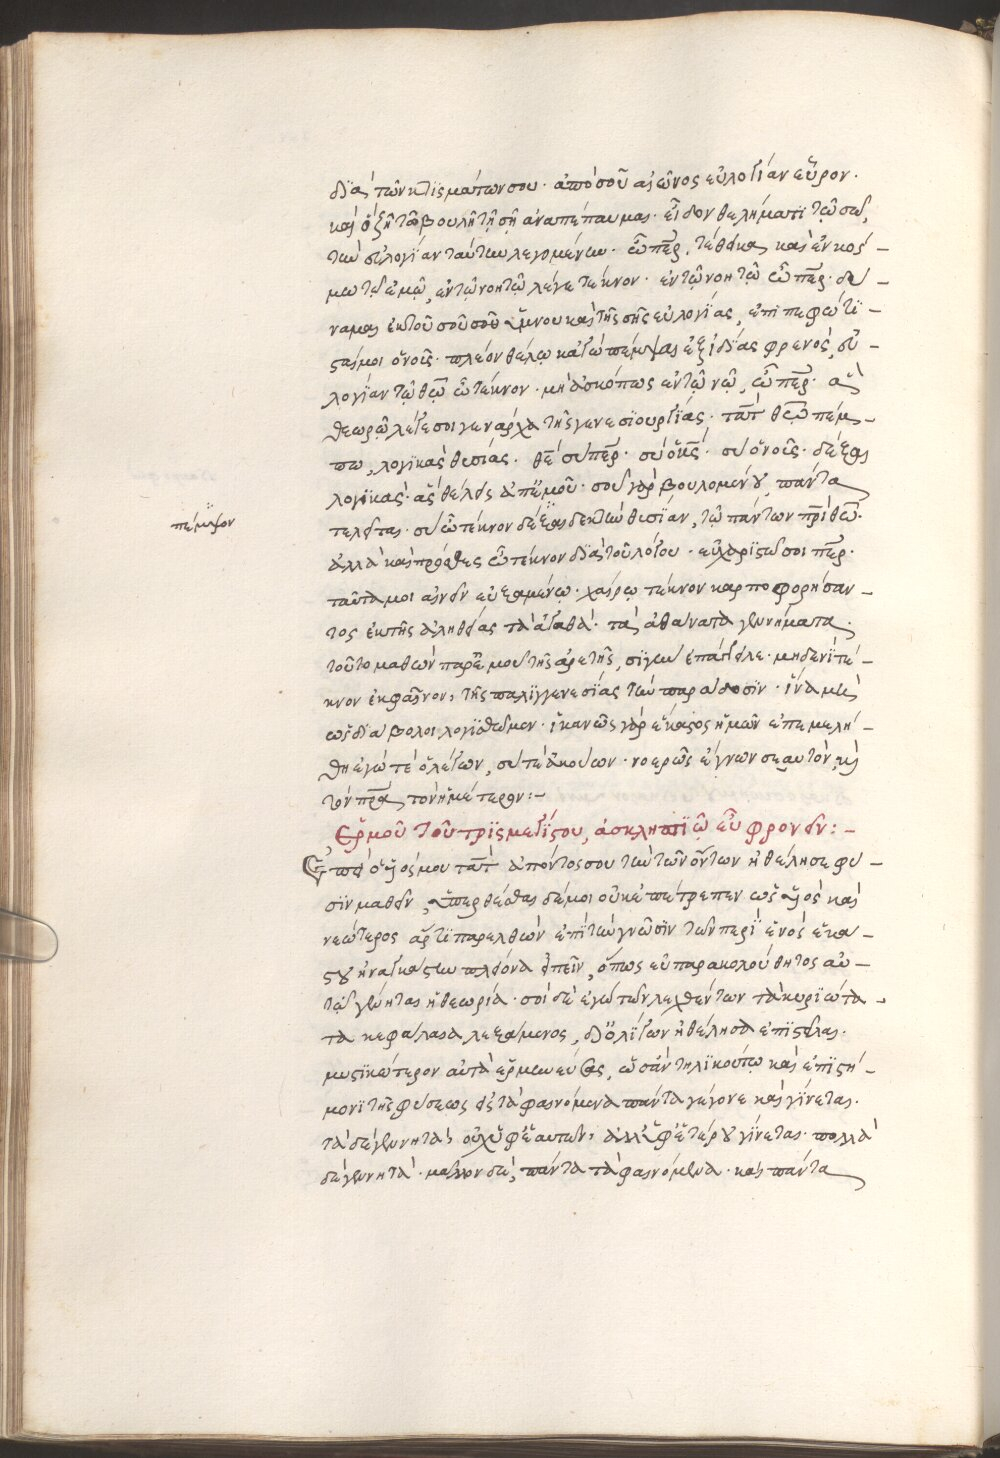 διὰ τῶν κτισμάτων σου· ἀπὸ σοῦ αἰῶνος εὐλογίαν εὗρον·
καὶ ὃ ζητῶ βουλῇ τῇ σῇ ἀναπέπαυμαι· εἶδον θελήματι τῷ σῷ,
τὴν εὐλογίαν ταύτην λεγομένην· ὦ περ, τέθεικα καὶ ἐν κόσ–
μω τῷ ἐμῷ, ἐν τῷ νοητῷ λέγε τέκνον· ἐν τῷ νοητῷ ὦ περ· δύ–
ναμαι ἐκ τοῦ σοῦ σοῦ ὕμνου καὶ τῆς σῆς εὐλογίας, ἐπιπεφώτι–
σταί μοι ὁ νοῦς· πλέον θέλω κἀγὼ πέμψαι ἐξ ἰδίας φρενὸς, εὐ–
λογίαν τῷ θῶ ὦ τέκνον· μὴ ἀσκόπως ἐν τῷ νῷ, ὦ περ· ἃ
θεωρῶ λέγε σοι γενάρχα τῆς γενεσιουργίας· τατ θεῶ πέμ–
πω, λογικὰς θυσίας· θέ σὺ περ· σὺ ὁ κς· σὺ ὁ νοῦς· δέξαι
λογικὰς· ἃς θέλεις ἀπ' ἐμοῦ· σοῦ γὰρ βουλομένου, πάντα
τελεῖται· σὺ ὦ τέκνον δέξαι δεκτὴν θυσίαν, τῷ πάντων πρὶ θεῷ·
ἀλλὰ καὶ πρόσθες ὦ τέκνον διὰ τοῦ λόγου· εὐχαριστῶ σοι περ·
ταῦτά μοι αἰνεῖν εὐξαμένῳ· χαίρω τέκνον καρποφορήσαν–
τος ἐκ τῆς ἀληθείας τὰ ἀγαθά· τὰ ἀθάνατα γεννήματα·
τοῦτο μαθὼν παρ' ἐμοῦ τῆς ἀρετῆς, σιγὴν ἐπάγγειλε· μηδενὶ τέ–
κνον ἐκφαῖνον, τῆς παλιγγενεσίας τὴν παράδοσιν· ἵνα μὴ
ὡς διάβολοι λογισθῶμεν· ἱκανῶς γὰρ ἕκαστος ἡμῶν ἐπεμελή–
θη ἐγώ τε ὁ λέγων, σύ τε ἀκούων· νοερῶς ἔγνων σεαυτὸν, καὶ
τὸν πρα τὸν ἡμέτερον:–
Ἑρμοῦ τοῦ τρισμεγίστου, ἀσκληπιῷ εὖ φρονεῖν:–
Ἐπεὶ ὁ υἱός μου τατ ἀπόντος σου τὴν τῶν ὄντων ἠθέλησε φύ–
σιν μαθεῖν, ὑπερθέσθαι δέ μοι οὐκ ἐπέτρεπεν ὡς υἱὸς καὶ
νεώτερος ἄρτι παρελθὼν ἐπὶ τὴν γνῶσιν τῶν περὶ ἑνὸς ἑκά–
στου ἠναγκάσθην πλείονα εἰπεῖν, ὅπως εὐπαρακολούθητος αὐ–
τῷ γένηται ἡ θεωρία· σοὶ δὲ ἐγὼ τῶν λεχθέντων τὰ κυριώτα–
τα κεφάλαια λεξάμενος, δι' ὀλίγων ἠθέλησα ἐπιστεῖλαι·
μυστικώτερον αὐτὰ ἑρμηνεύσας, ὡσὰν τηλικούτῳ καὶ ἐπιστή–
μονι τῆς φύσεως εἰ τὰ φαινόμενα πάντα γέγονε καὶ γίνεται·
τὰ δὲ γεννητὰ, οὐχ ὑφ' ἑαυτῶν, ἀλλ' ὑφ' ἑτέρου γίνεται· πολλὰ
δὲ γεννητὰ· μᾶλλον δὲ, πάντα τὰ φαινόμενα· καὶ πάντα
πέμψον